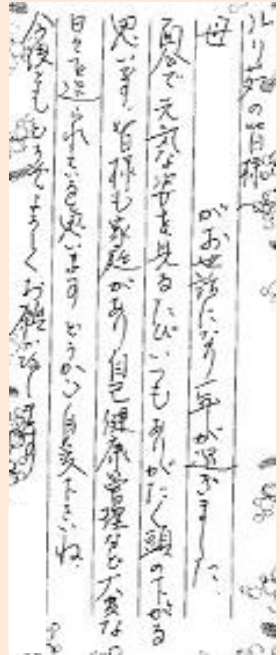 ルリ苑の皆様へ
母 がお世話になり一年が過ぎました。
面会で元気な姿を見るたびいつもありがたく頭の下がる
思いです。皆様も家庭があり自己健康管理など大変な
日々を送られていると思います どうかご自愛下さいね。
今後ともどうぞよろしくお願い致します